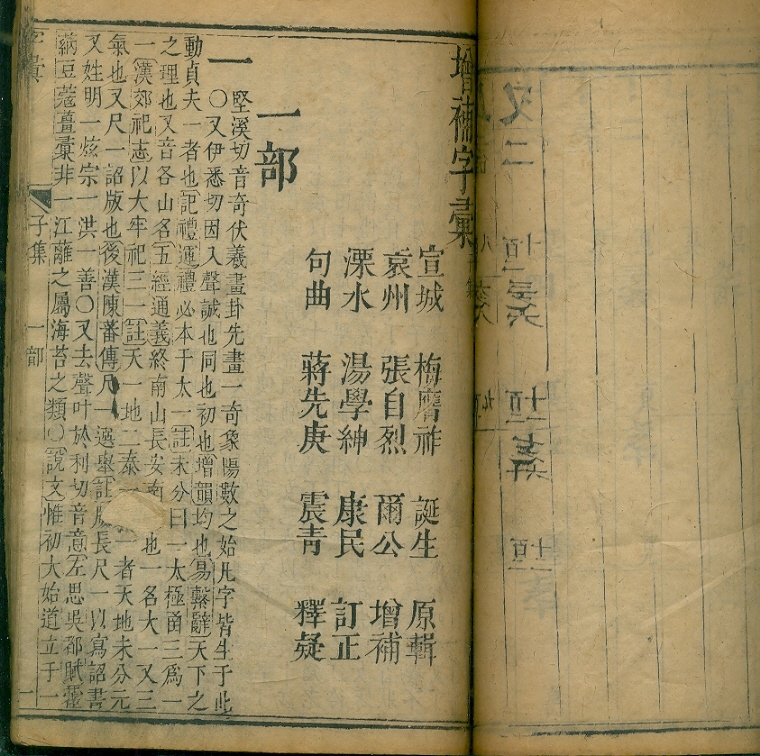 增補字彙
宣城 梅膺祚 誕生 原輯
袁州 張自烈 爾公 增補
溧水 湯學紳 康民 訂正
句曲 蔣先庚 震青 釋疑
一部
一 堅溪切音奇伏羲畫卦先畫一奇象陽數之始凡字皆生于此
〇又伊悉切因入聲誠也同也初也增韻均也易繫辭天下之
動貞夫一者也記禮運禮必本于太一註未分曰一太極函三爲一
之理也又音各山名五經通義終南山長安南 也一名大一又三
一漢郊祀志以大牢祀三一註天一地二泰一 一者天地未分元
氣也又尺一詔版也後漢陳蕃傳尺一選舉註 長尺一以寫詔書
又姓明一炫宗一洪一善〇又去聲叶於利切音意左思吳都賦藿
蒳豆蔻薑彙非一江離之屬海苔之類〇說文惟初大始道立于一
字彙 子集 一部 一